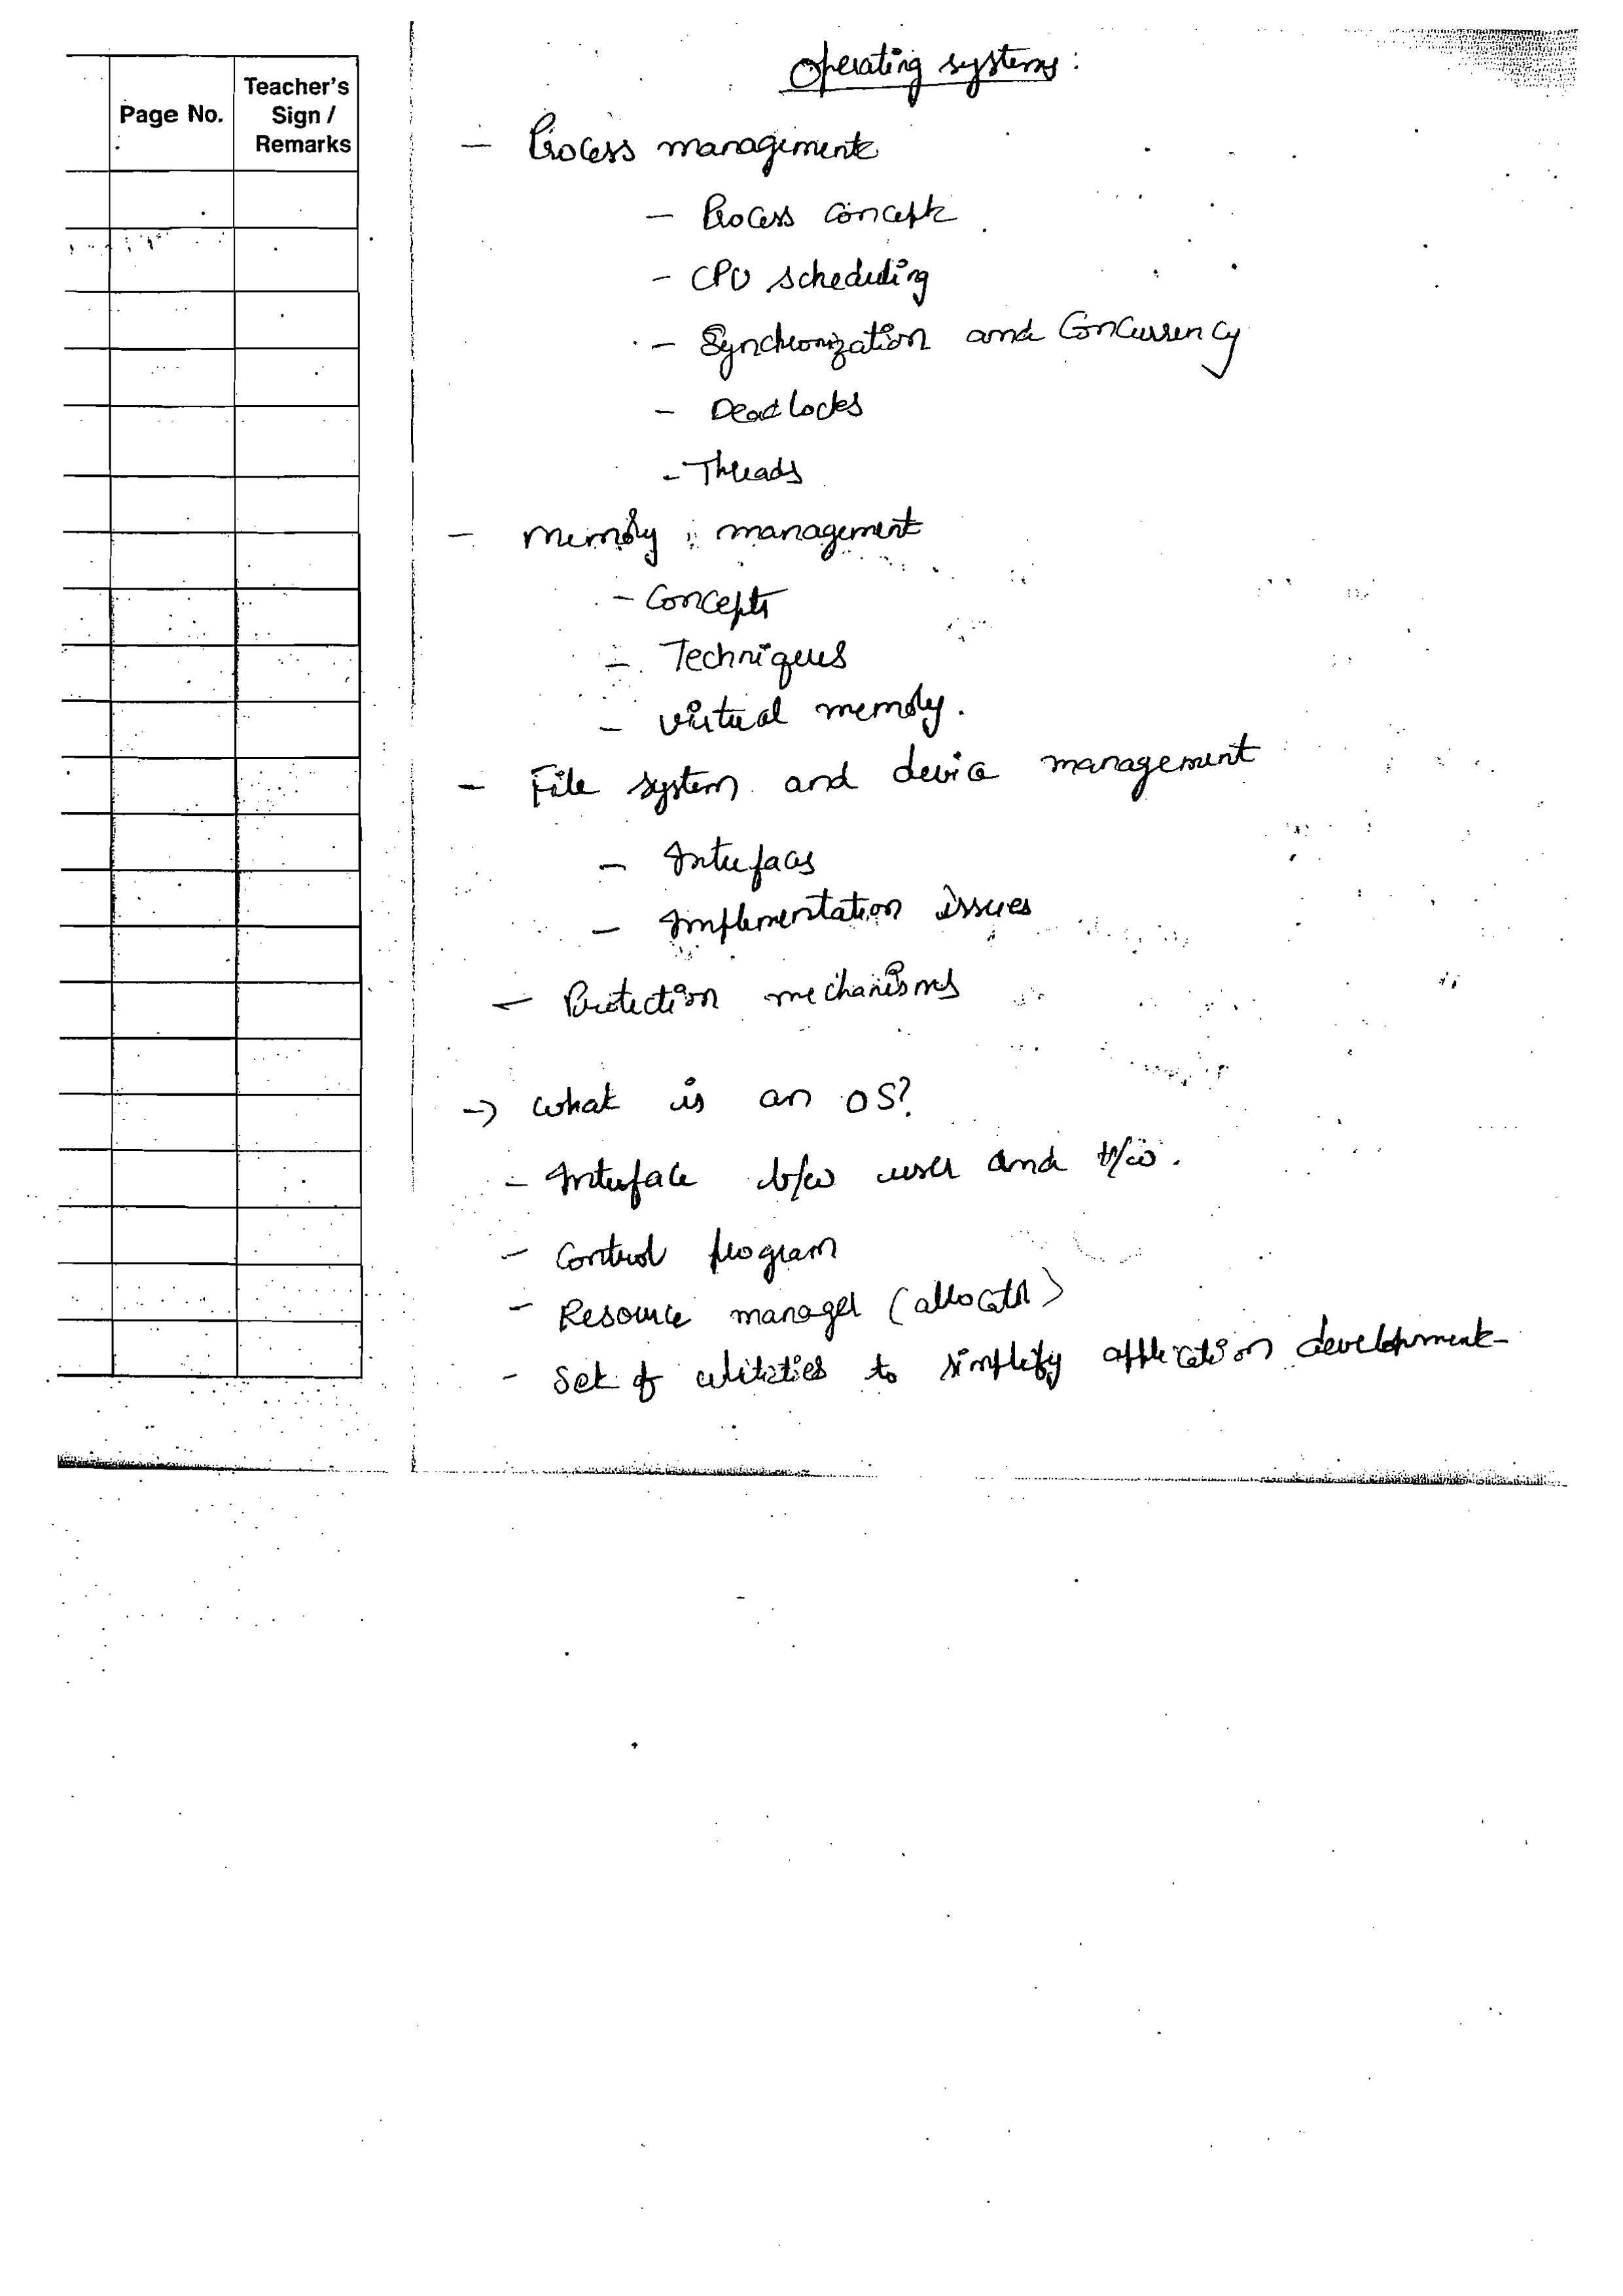 Page No.
Teacher's
Sign /
Remarks
Operating systems:
- Process management
- Process concept
- CPU scheduling
- Synchronization and Concurrency
- Deadlocks
- Threads
- Memory management
- Concepts
- Techniques
- Virtual memory.
- File system and device management
- Interfaces
- Implementation issues
- Protection mechanisms
→ What is an OS?
- Interface b/w user and H/W.
- Control program
- Resource manager (allocator)
- Set of utilities to simplify application development